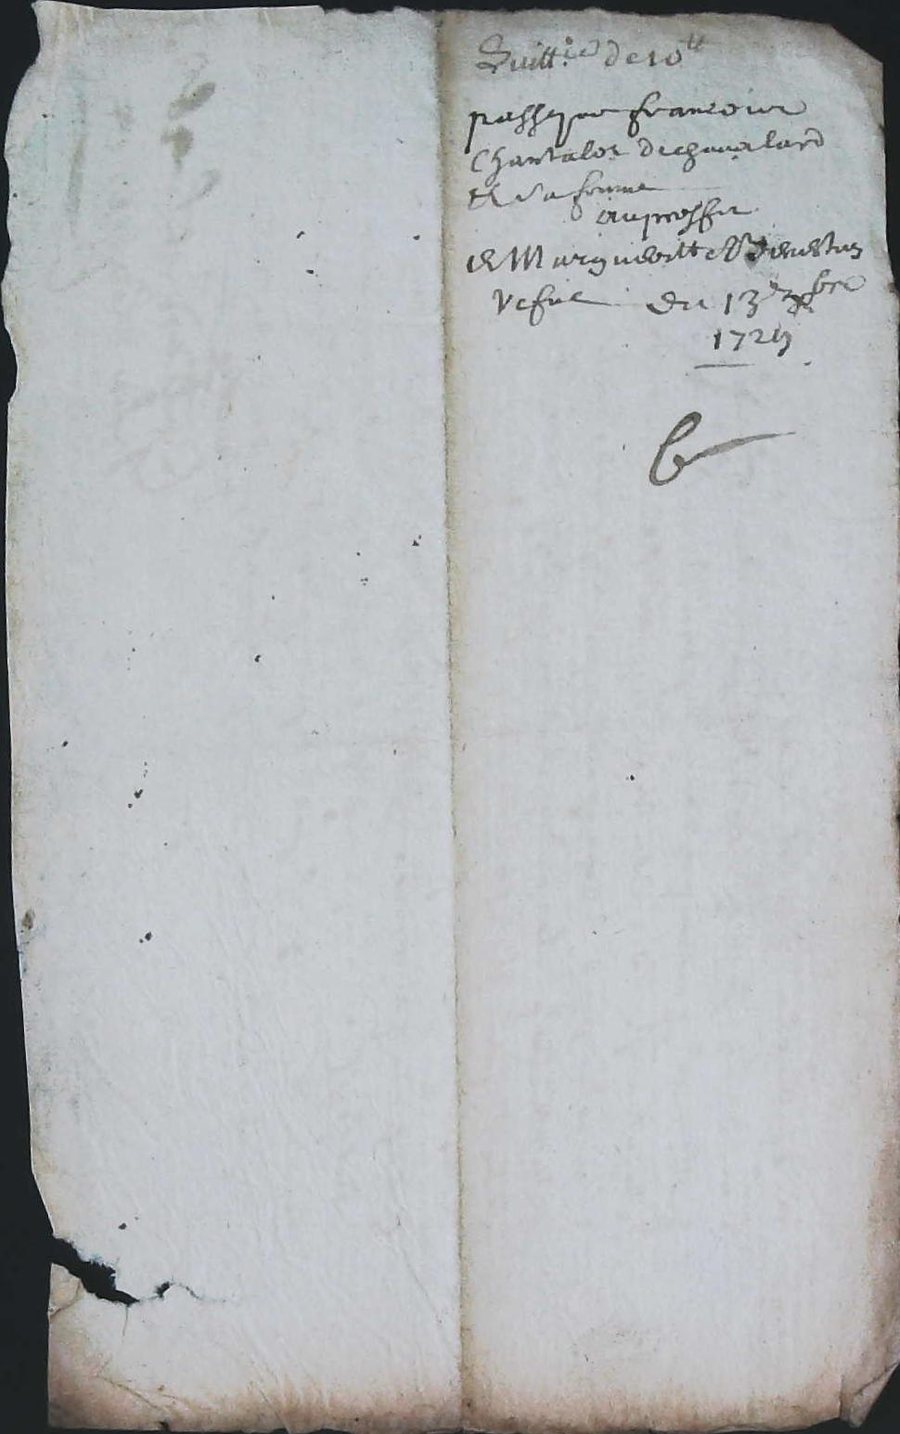 Quitt.ce de 10tt
passé par francois
Chantalos de chavalard
et sa femme
au proffit
de Margueritte
vefue du 13e xbre
172